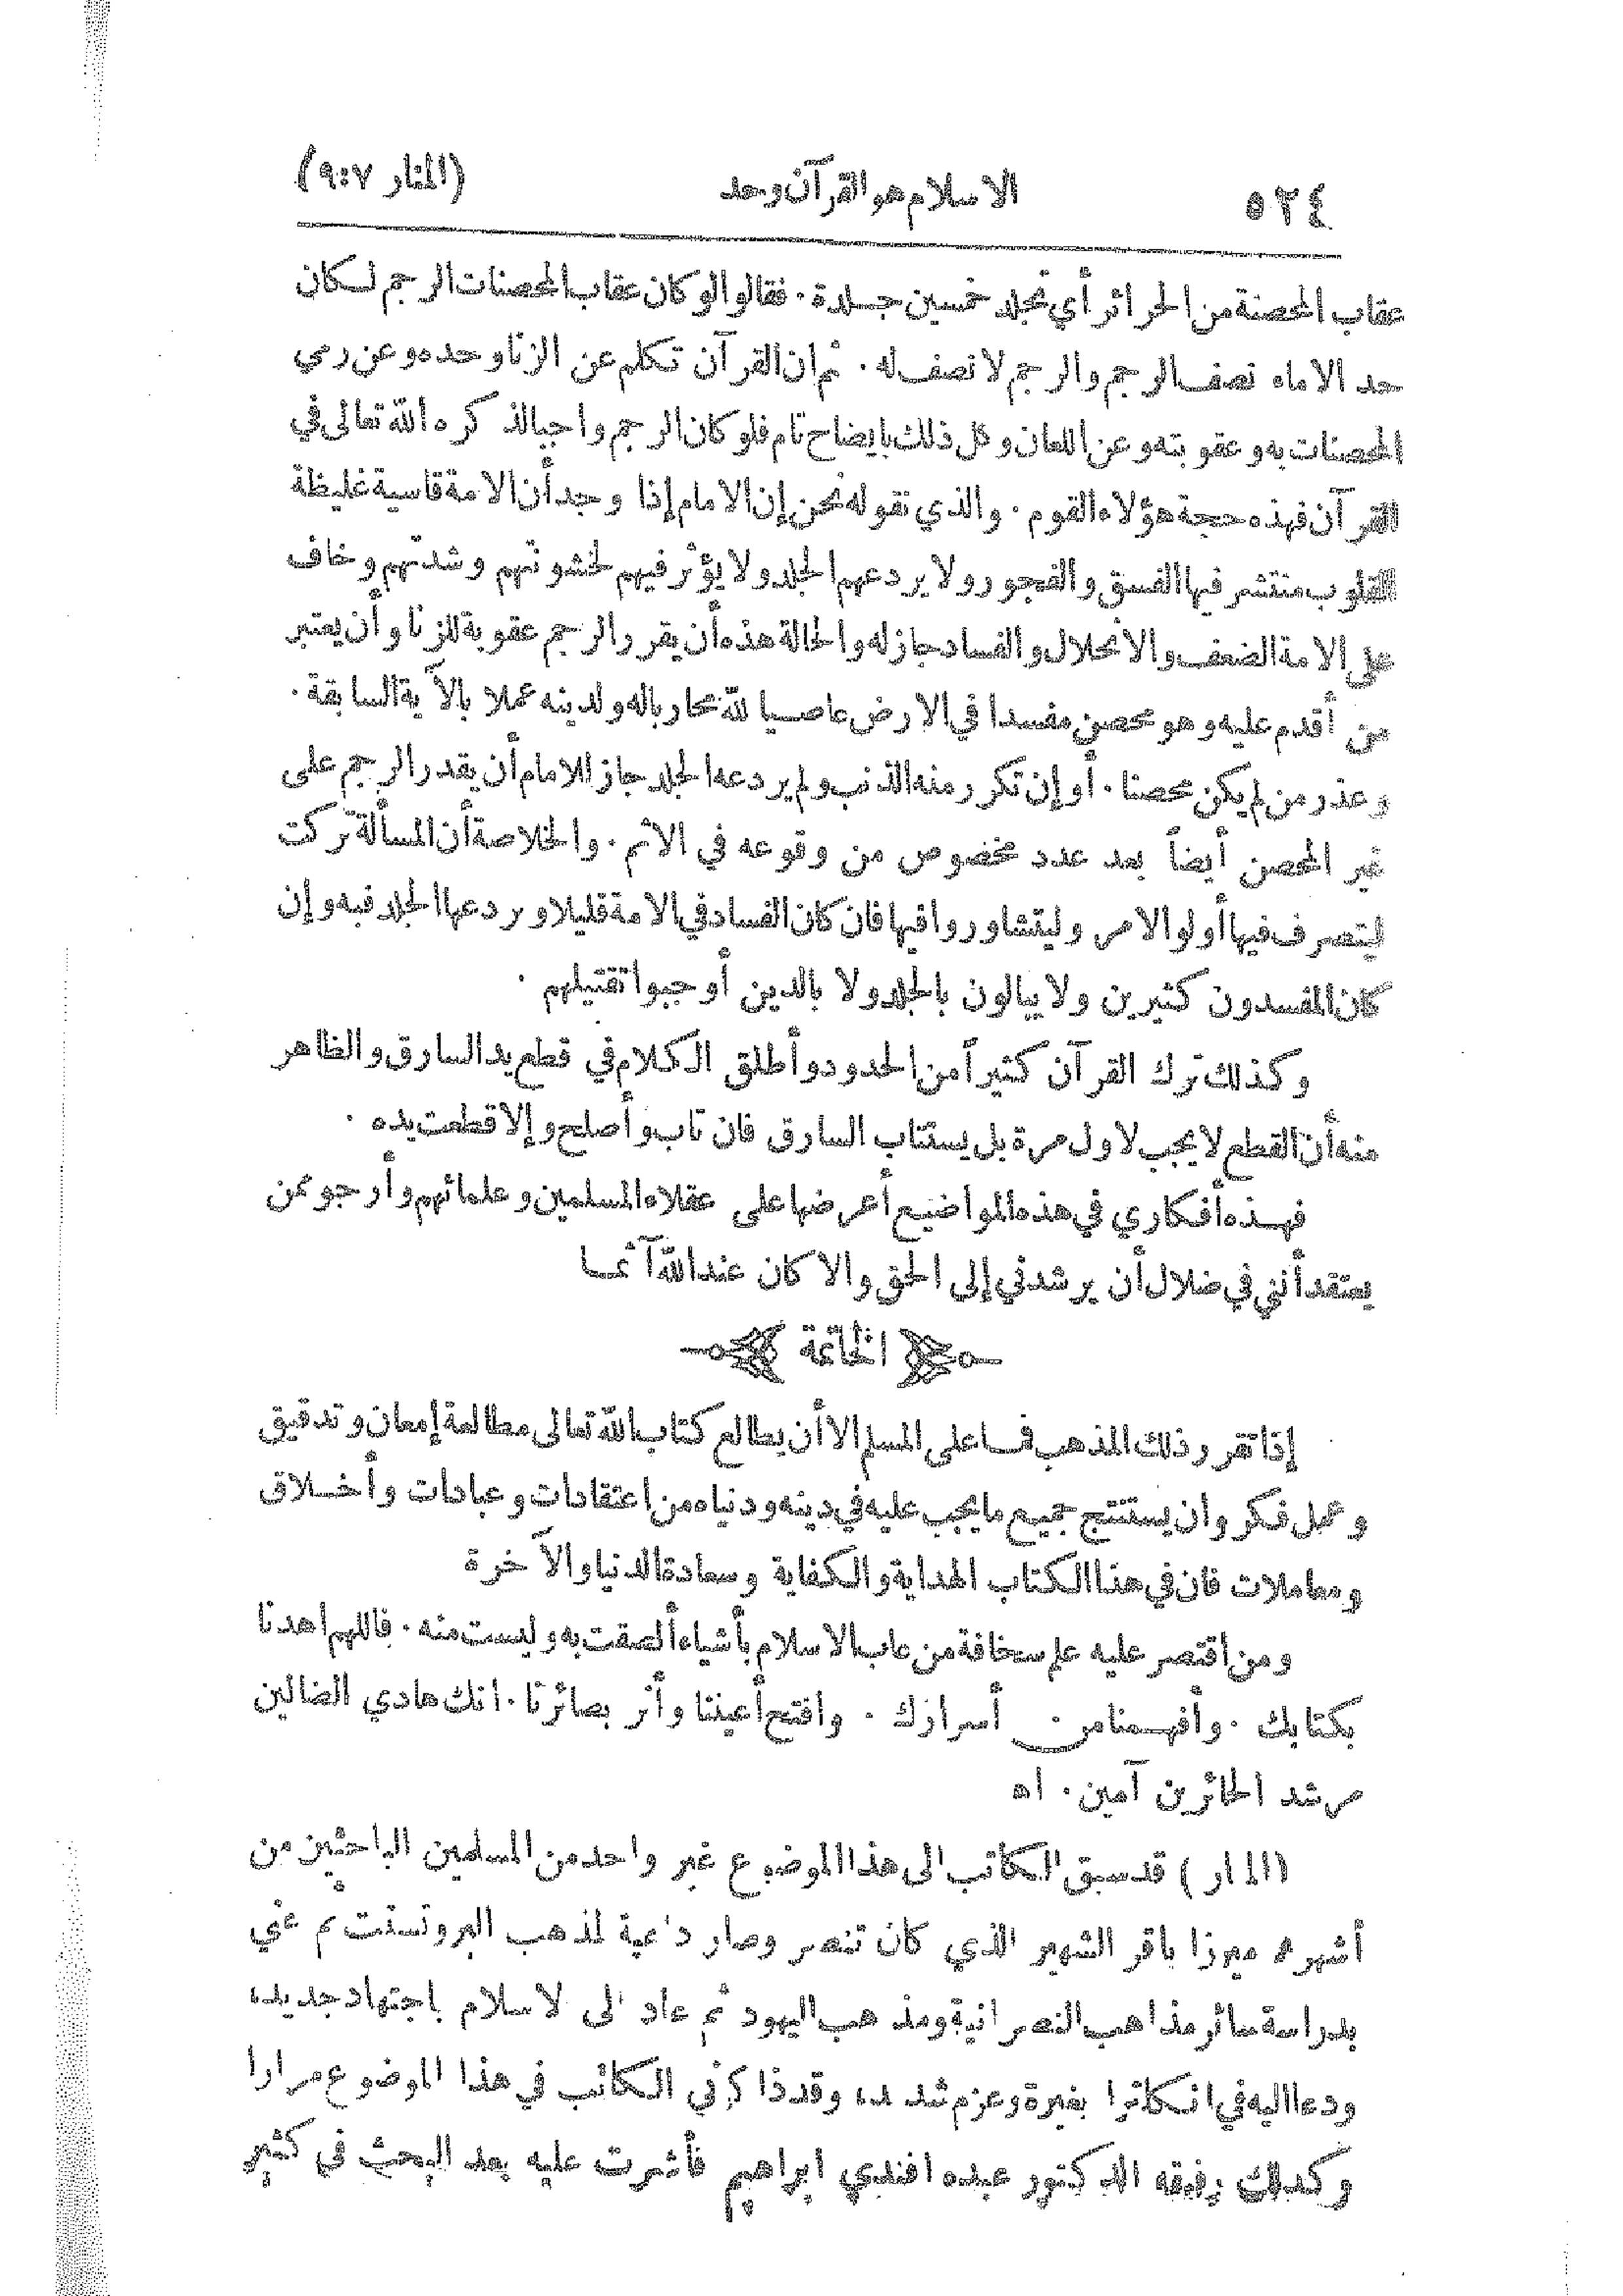 ٥٢٤ الاسلام هو القرآن وحد (المنار ٩:٧)
عقاب المحصنة من الحرائر أي تجلد خمسين جلدة . فقالوا لو كان عقاب المحصنات الرجم لكان
حد الاماء نصف الرجم والرجم لا نصف له . ثم ان القرآن تكلم عن الزنا وحده وعن رمي
المحصنات به وعقوبته وعن اللعان وكل ذلك بايضاح تام فلو كان الرجم واجبا لذكره الله تعالى في
القرآن فهذه حجة هؤلاء القوم . والذي نقوله نحن إن الامام إذا وجد أن الامة قاسية غليظة
القلوب منتشر فيها الفسق والفجور ولا يردعهم الجلد ولا يؤثر فيهم لخشونتهم وشدتهم وخاف
على الامة الضعف والانحلال والفساد جاز له والحالة هذه أن يقرر الرجم عقوبة للزنا وأن يعتبر
من أقدم عليه وهو محصن مفسدا في الارض عاصيا لله محاربا له ولدينه عملا بالآية السابقة .
وعذر من لم يكن محصنا . أو إن تكرر منه الذنب ولم يردعه الجلد جاز للامام أن يقدر الرجم على
غير المحصن أيضاً بعد عدد مخصوص من وقوعه في الاثم . والخلاصة أن المسألة تركت
ليتصرف فيها أولو الامر وليتشاوروا فيها فان كان الفساد في الامة قليلا وردعها الجلد فبه وإن
كان المفسدون كثيرين ولا يبالون بالجلد ولا بالدين أوجبوا تقتيلهم .
وكذلك ترك القرآن كثيراً من الحدود وأطلق الكلام في قطع يد السارق والظاهر
منه أن القطع لا يجب لاول مرة بل يستتاب السارق فان تاب وأصلح وإلا قطعت يده .
فهذه أفكاري في هذه المواضيع أعرضها على عقلاء المسلمين وعلمائهم وأرجو ممن
يعتقد أنني في ضلال أن يرشدني إلى الحق والا كان عند الله آثما
الخاتمة
إذا تقرر ذلك المذهب فما على المسلم الا أن يطالع كتاب الله تعالى مطالعة إمعان وتدقيق
وعمل فكر وان يستنتج جميع ما يجب عليه في دينه ودنياه من اعتقادات وعبادات وأخلاق
ومعاملات فان في هذا الكتاب الهداية والكفاية وسعادة الدنيا والآخرة
ومن اقتصر عليه علم سخافة من عاب الاسلام بأشياء ألصقت به وليست منه . فاللهم اهدنا
بكتابك . وأفهمنا من أسرارك . وافتح أعيننا وأنر بصائرنا . انك هادي الضالين
مرشد الحائرين آمين . اه
(المنار) قد سبق الكاتب الى هذا الموضوع غير واحد من المسلمين الباحثين من
أشهرهم ميرزا باقر الشهير الذي كان تنصر وصار داعية لمذهب البروتستنت ثم عني
بدراسة سائر مذاهب النصرانية ومذهب اليهود ثم عاد الى الاسلام باجتهاد جديد،
ودعا اليه في انكلترا بغيرة وعزم شديد، وقد ذاكرني الكاتب في هذا الموضوع مرارا
وكذلك رفيقه الدكتور عبده افندي ابراهيم فأشرت عليه بعد البحث في كثير